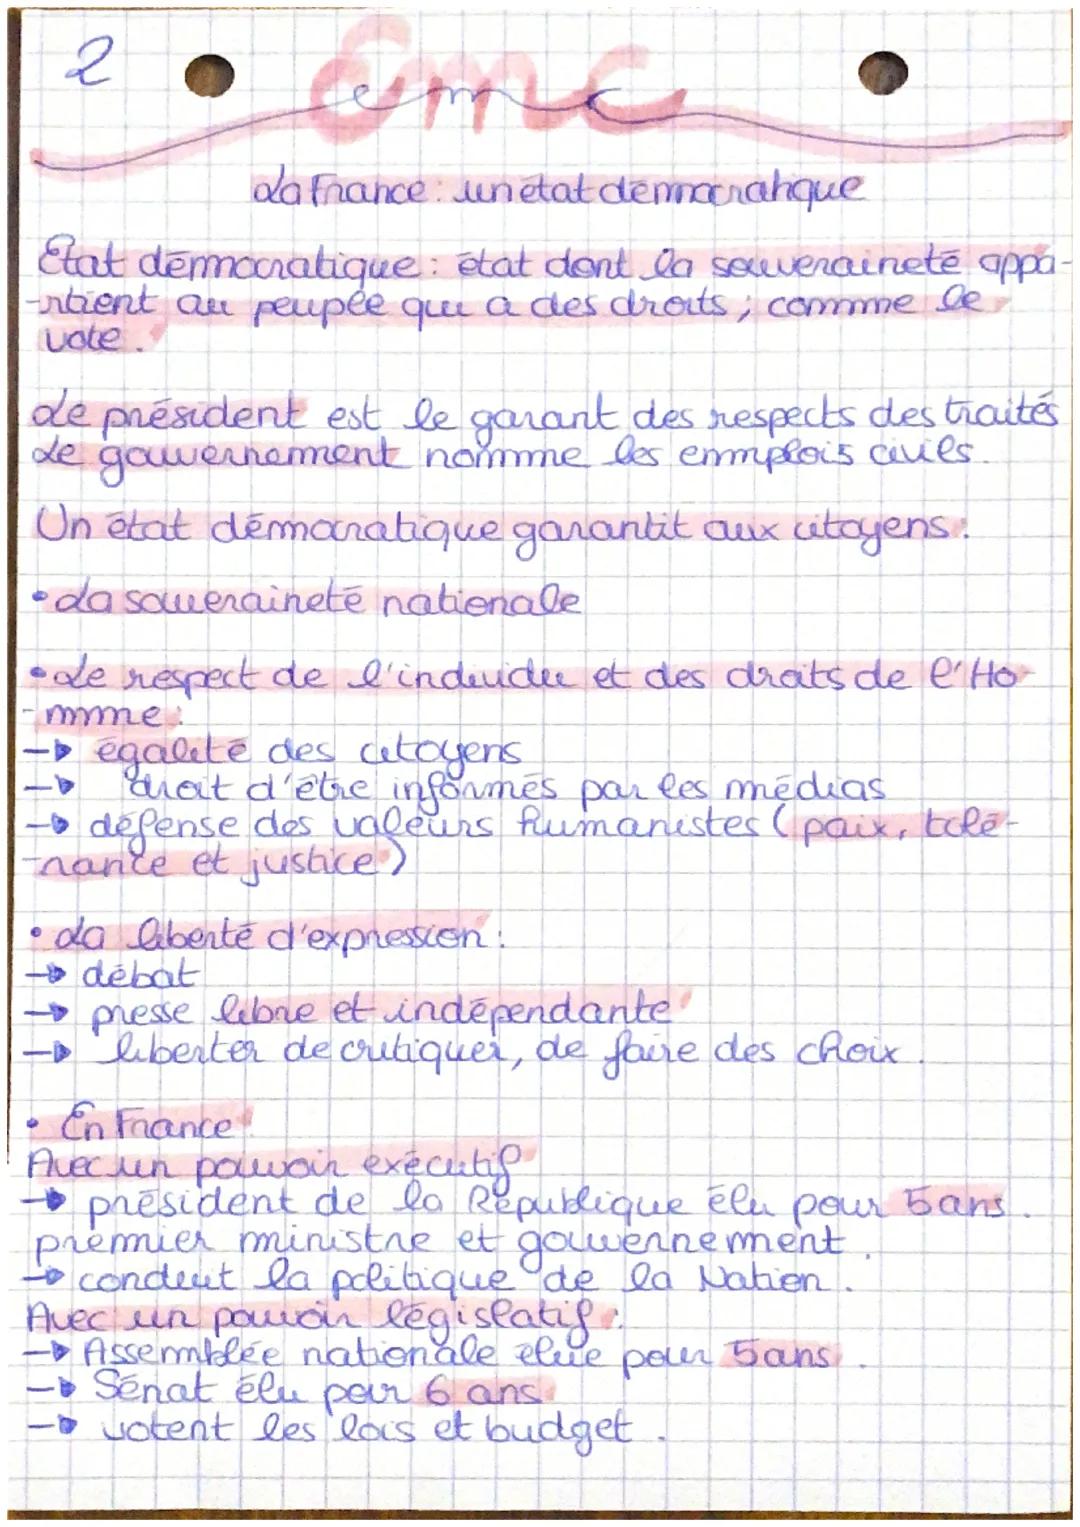 2
emc
La France : un état démocratique
État démocratique : état dont la souveraineté appa-
-rtient au peuplée qui a des droits ; comme le
vote.
Le président est le garant des respects des traités
Le gouvernement nomme les emplois civils.
Un état démocratique garantit aux citoyens :
• La souveraineté nationale
• Le respect de l'individu et des droits de l'Ho-
-mme :
→ égalité des citoyens
→ droit d'être informés par les médias
→ défense des valeurs humanistes ( paix, tolé-
-rance et justice )
• La liberté d'expression :
→ débat
→ presse libre et indépendante
→ liberter de critiquer, de faire des choix.
• En France
Avec un pouvoir exécutif
→ président de la République élu pour 5 ans.
premier ministre et gouvernement.
→ conduit la politique de la Nation.
Avec un pouvoir législatif :
→ Assemblée nationale élue pour 5 ans.
→ Sénat élu pour 6 ans
→ votent les lois et budget.